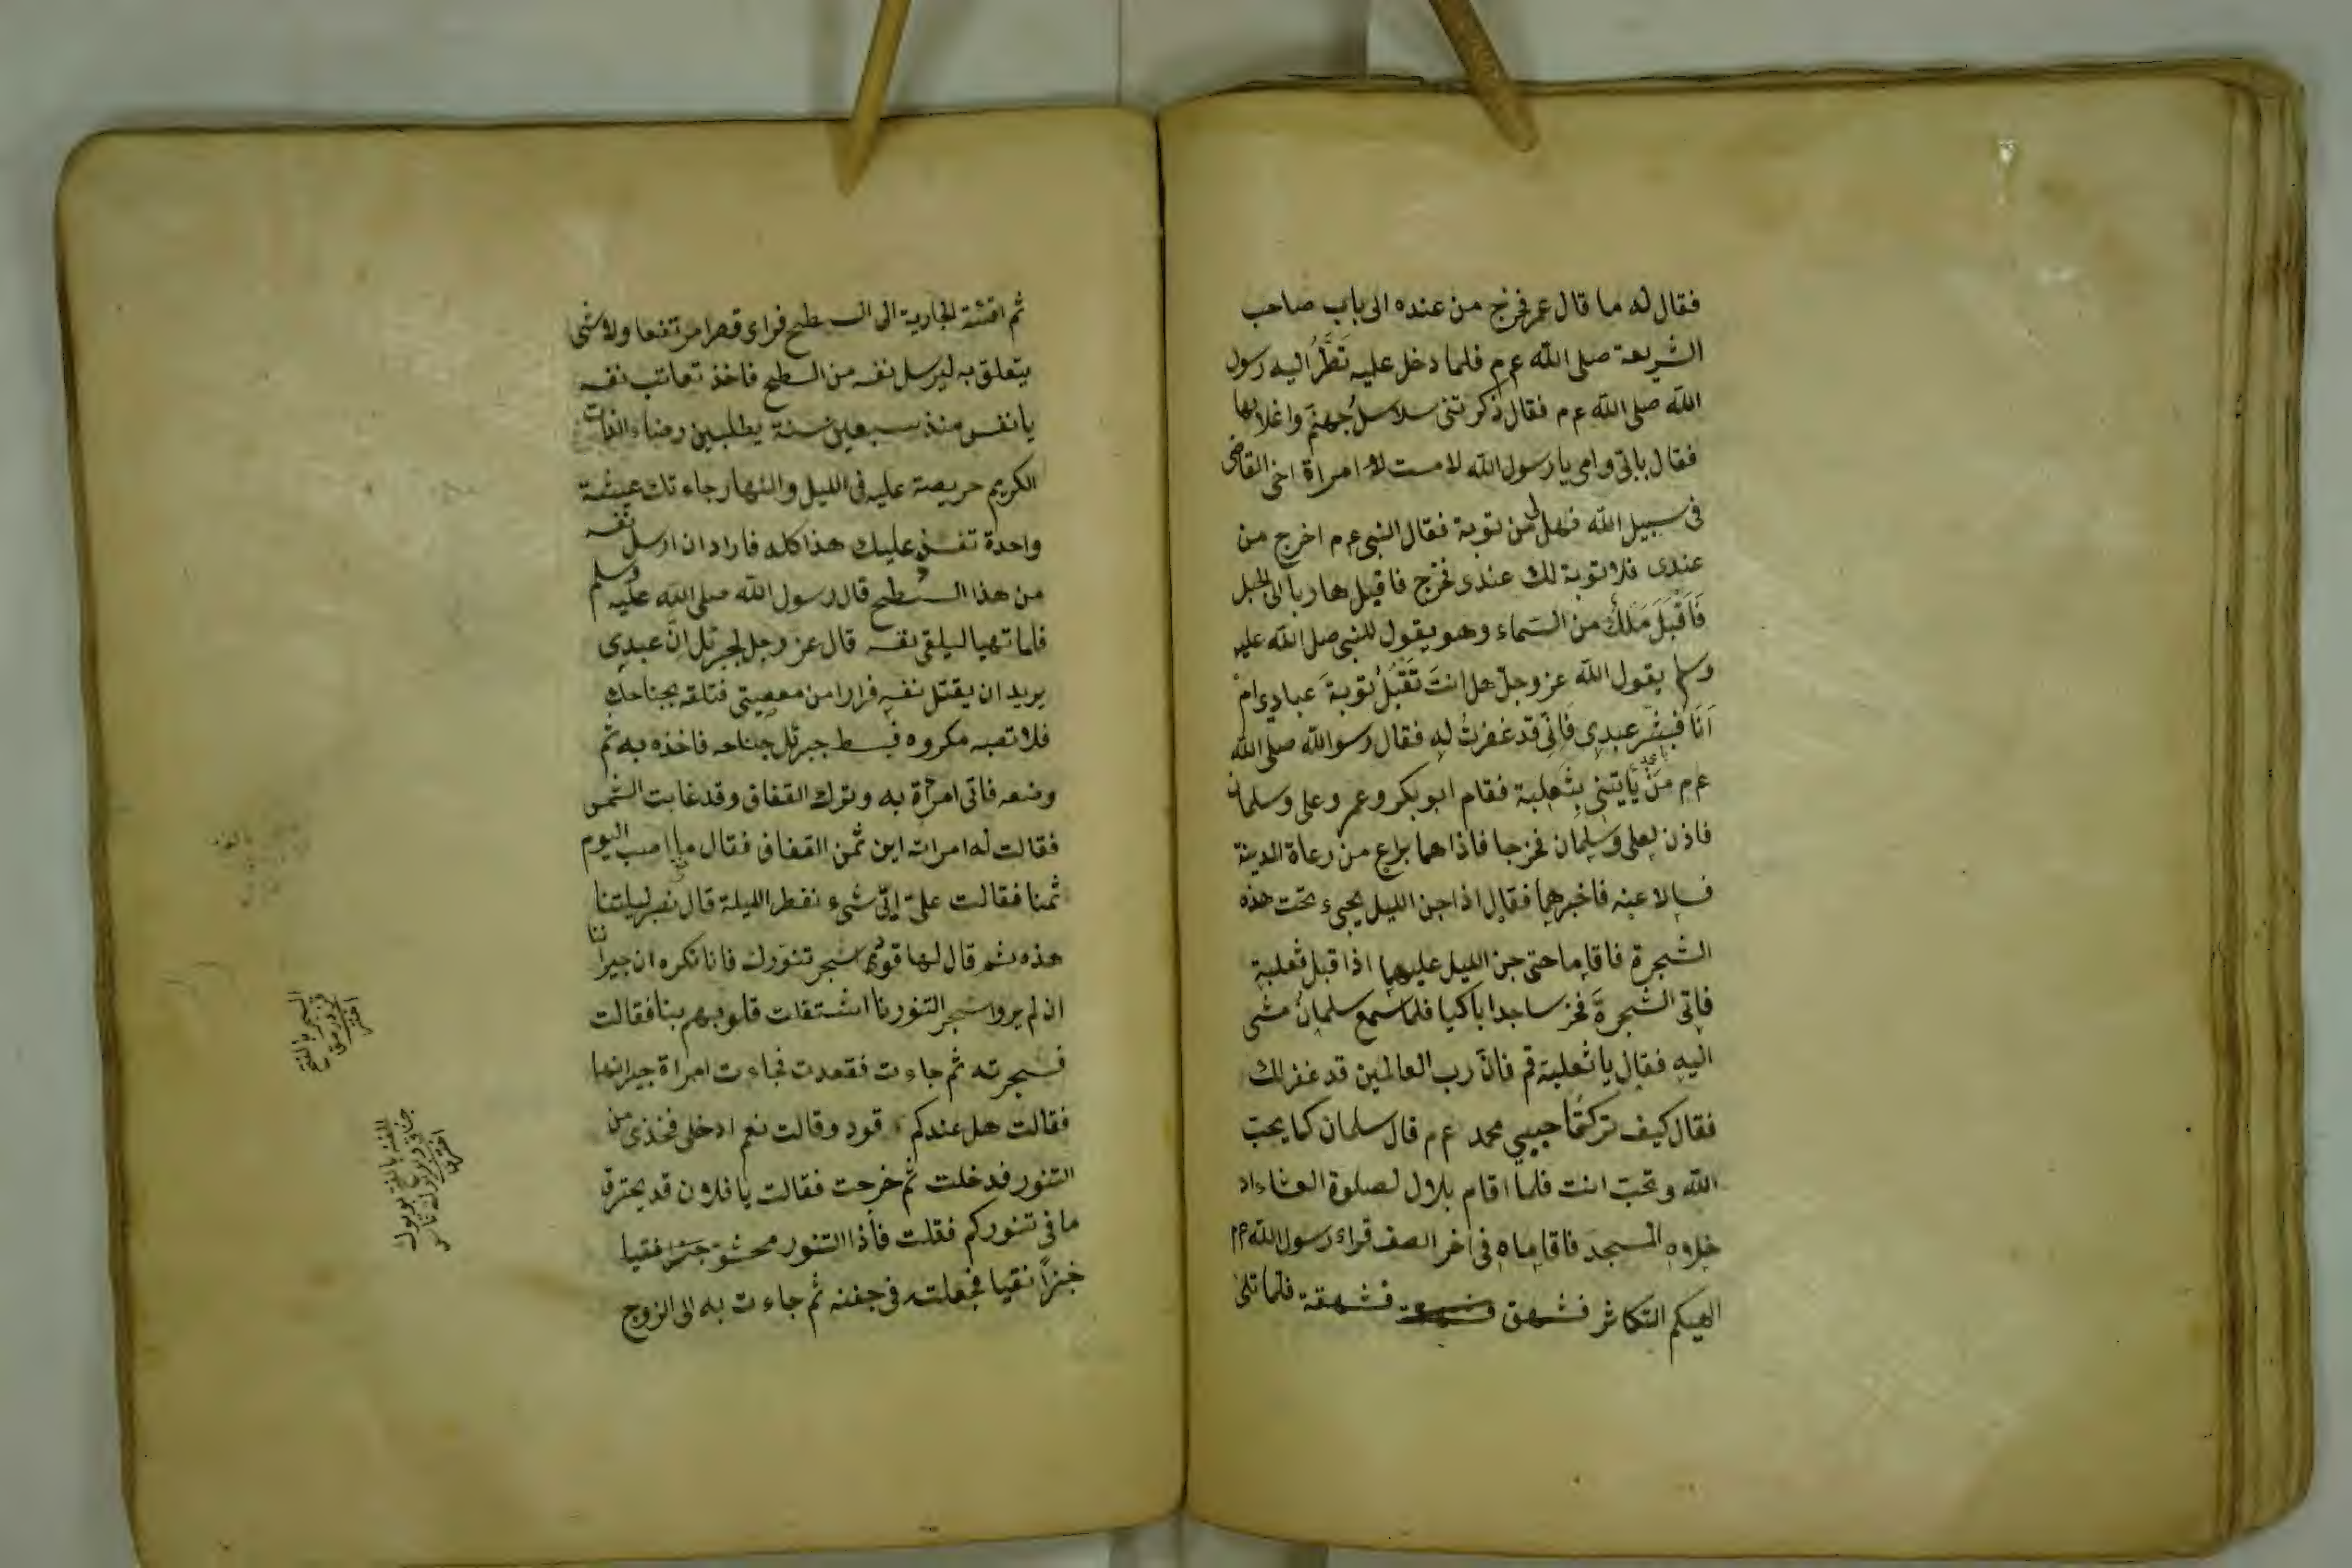 فقال له ما قال عمر فخرج من عنده الى باب صاحب
الشريعة صلى الله عم فلما دخل عليه نَظَرَ اليه رسول
الله صلى الله عم فقال ذكرتنى سلاسلُ جهنَم واغلالها
فقال بابى وامى يا رسول الله لامست لا امراة اخى القاضى
فى سبيل الله فهل لى من توبة فقال النبى عم اخرج من
عندى فلا توبة لك عندى فخرج فاقبل هاربا الى الجبل
فَاَقْبَلَ مَلَكٌ من السماء وهو يقول للنبى صلى الله عليه
وسلم يقول الله عز وجلّ هل انتَ تَقْبَلُ توبةَ عبادى امْ
اَنَا فبشّر عبدى فَانّى قد غفرتُ له فقال رسو الله صلى الله
عم مَنْ يَاتينى بثعلبة فقام ابو بكر وعمر وعلى وسلمان
فاذن لعلى وسلمان فخرجا فاذا هما براع من رعاة المدينة
فسالا عنه فاخبرهما فقال اذا جن الليل يجىء تحت هذه
الشجرة فاقاما حتى جن الليل عليهما اذا قبل ثعلبة
فاتى الشجرةَ فخر ساجدا باكيا فلما سمع سلمانُ مشى
اليه فقال يا ثعلبة قم فانّ رب العالمين قد غفر لك
فقال كيف تركتُما حبيبى محمد عم قال سلمان كما يحبّ
الله وتحبّ انت فلما اقام بلال لصلوة العشاء اد
خلوه المسجدَ فاقاماه فى اخر الصف قراء رسول الله عم
الهيكم التكاثر فشهق فشهقة فلما تلى
ثم افشة الجارية الى السطح فراى قصرا مرتفعا ولا شى
يتعلق به ليرسل نفسه من السطح فاخذ تعاتب نفسه
يا نفس منذ سبعين سنة يطلبين رضاء
الكريم حريصة عليه فى الليل والنهار جاء تك عيشة
واحدة تفسد عليك هذا كله فاراد ان ارسل نفسه
من هذا السطح قال رسول الله صلى الله عليه وسلم
فلما تهيا ليلقى نفسه قال عز وجل لجبرئل انَّ عبدى
يريد ان يقتل نفسه فرارا من معصيتى فتلقه بجناحك
فلا تصبه مكروه فبسط جبرئل جناحه فاخذه به ثم
وضعه فاتى امراة به وترك القفاف وقد غابت الشمس
فقالت له امراته اين ثمن القفاف فقال ما اصب اليوم
ثمنا فقالت على اىّ شىء نفطر الليلة قال نصبر ليلتنا
هذه ثم قال لها قومى سجر تنورك فانا نكره ان جيراننا
ان لم يروا سجر التنور نا اشتقات قلوبهم بنا فقالت
فسجرته ثم جاءت فقعدت فجاءت امراة جيرانها
فقالت هل عندكم وقود وقالت نعم ادخلى فخذى من
التنور فدخلت ثم خرجت فقالت يا فلان قد يحترق
ما فى تنوركم فقلت فأذا التنور محشو خبزا نقيا
خبزاً نقيا فجعلته فى جفنه ثم جاءت به الى الزوج
السجر بالفتح